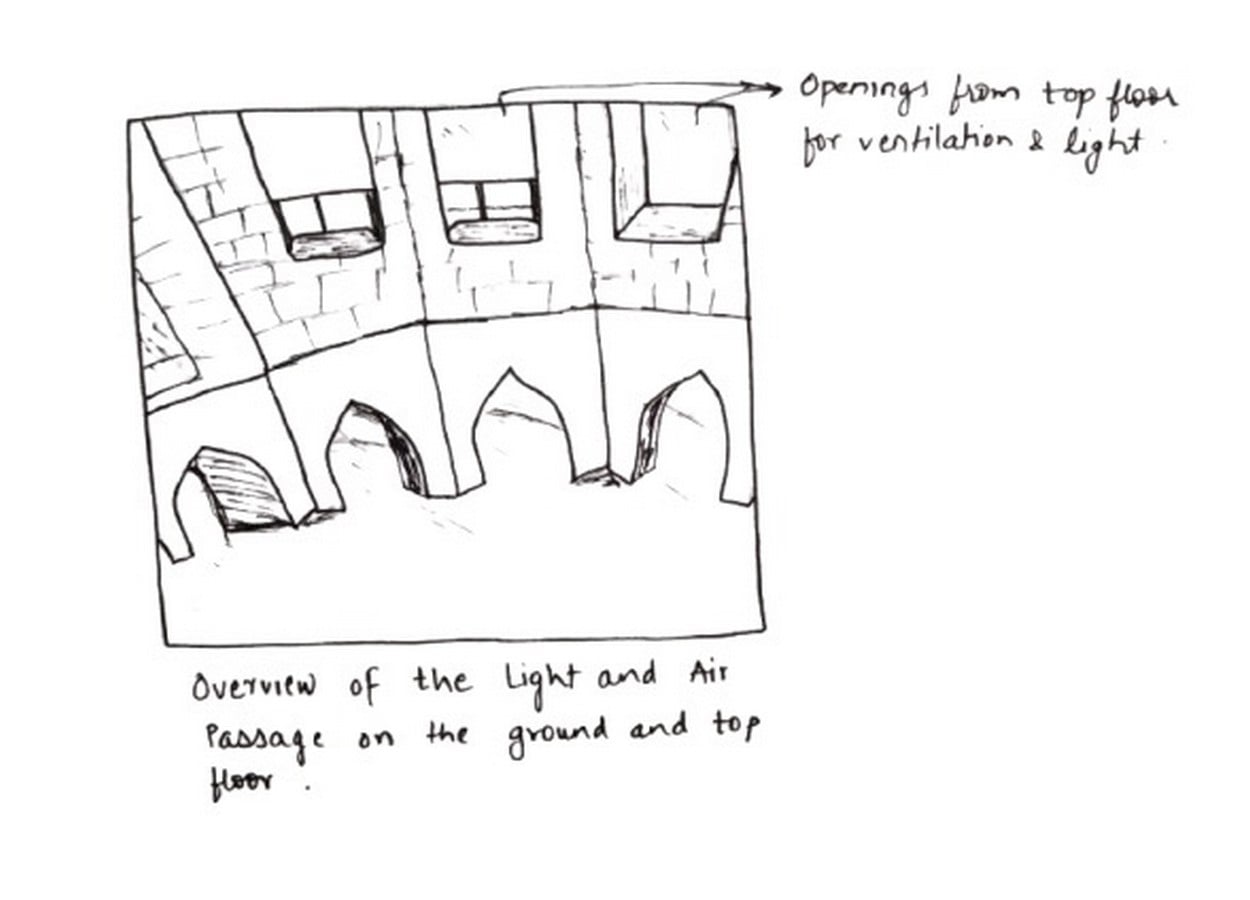 Openings from top floor
for ventilation & light.
Overview of the Light and Air
Passage on the ground and top
floor.